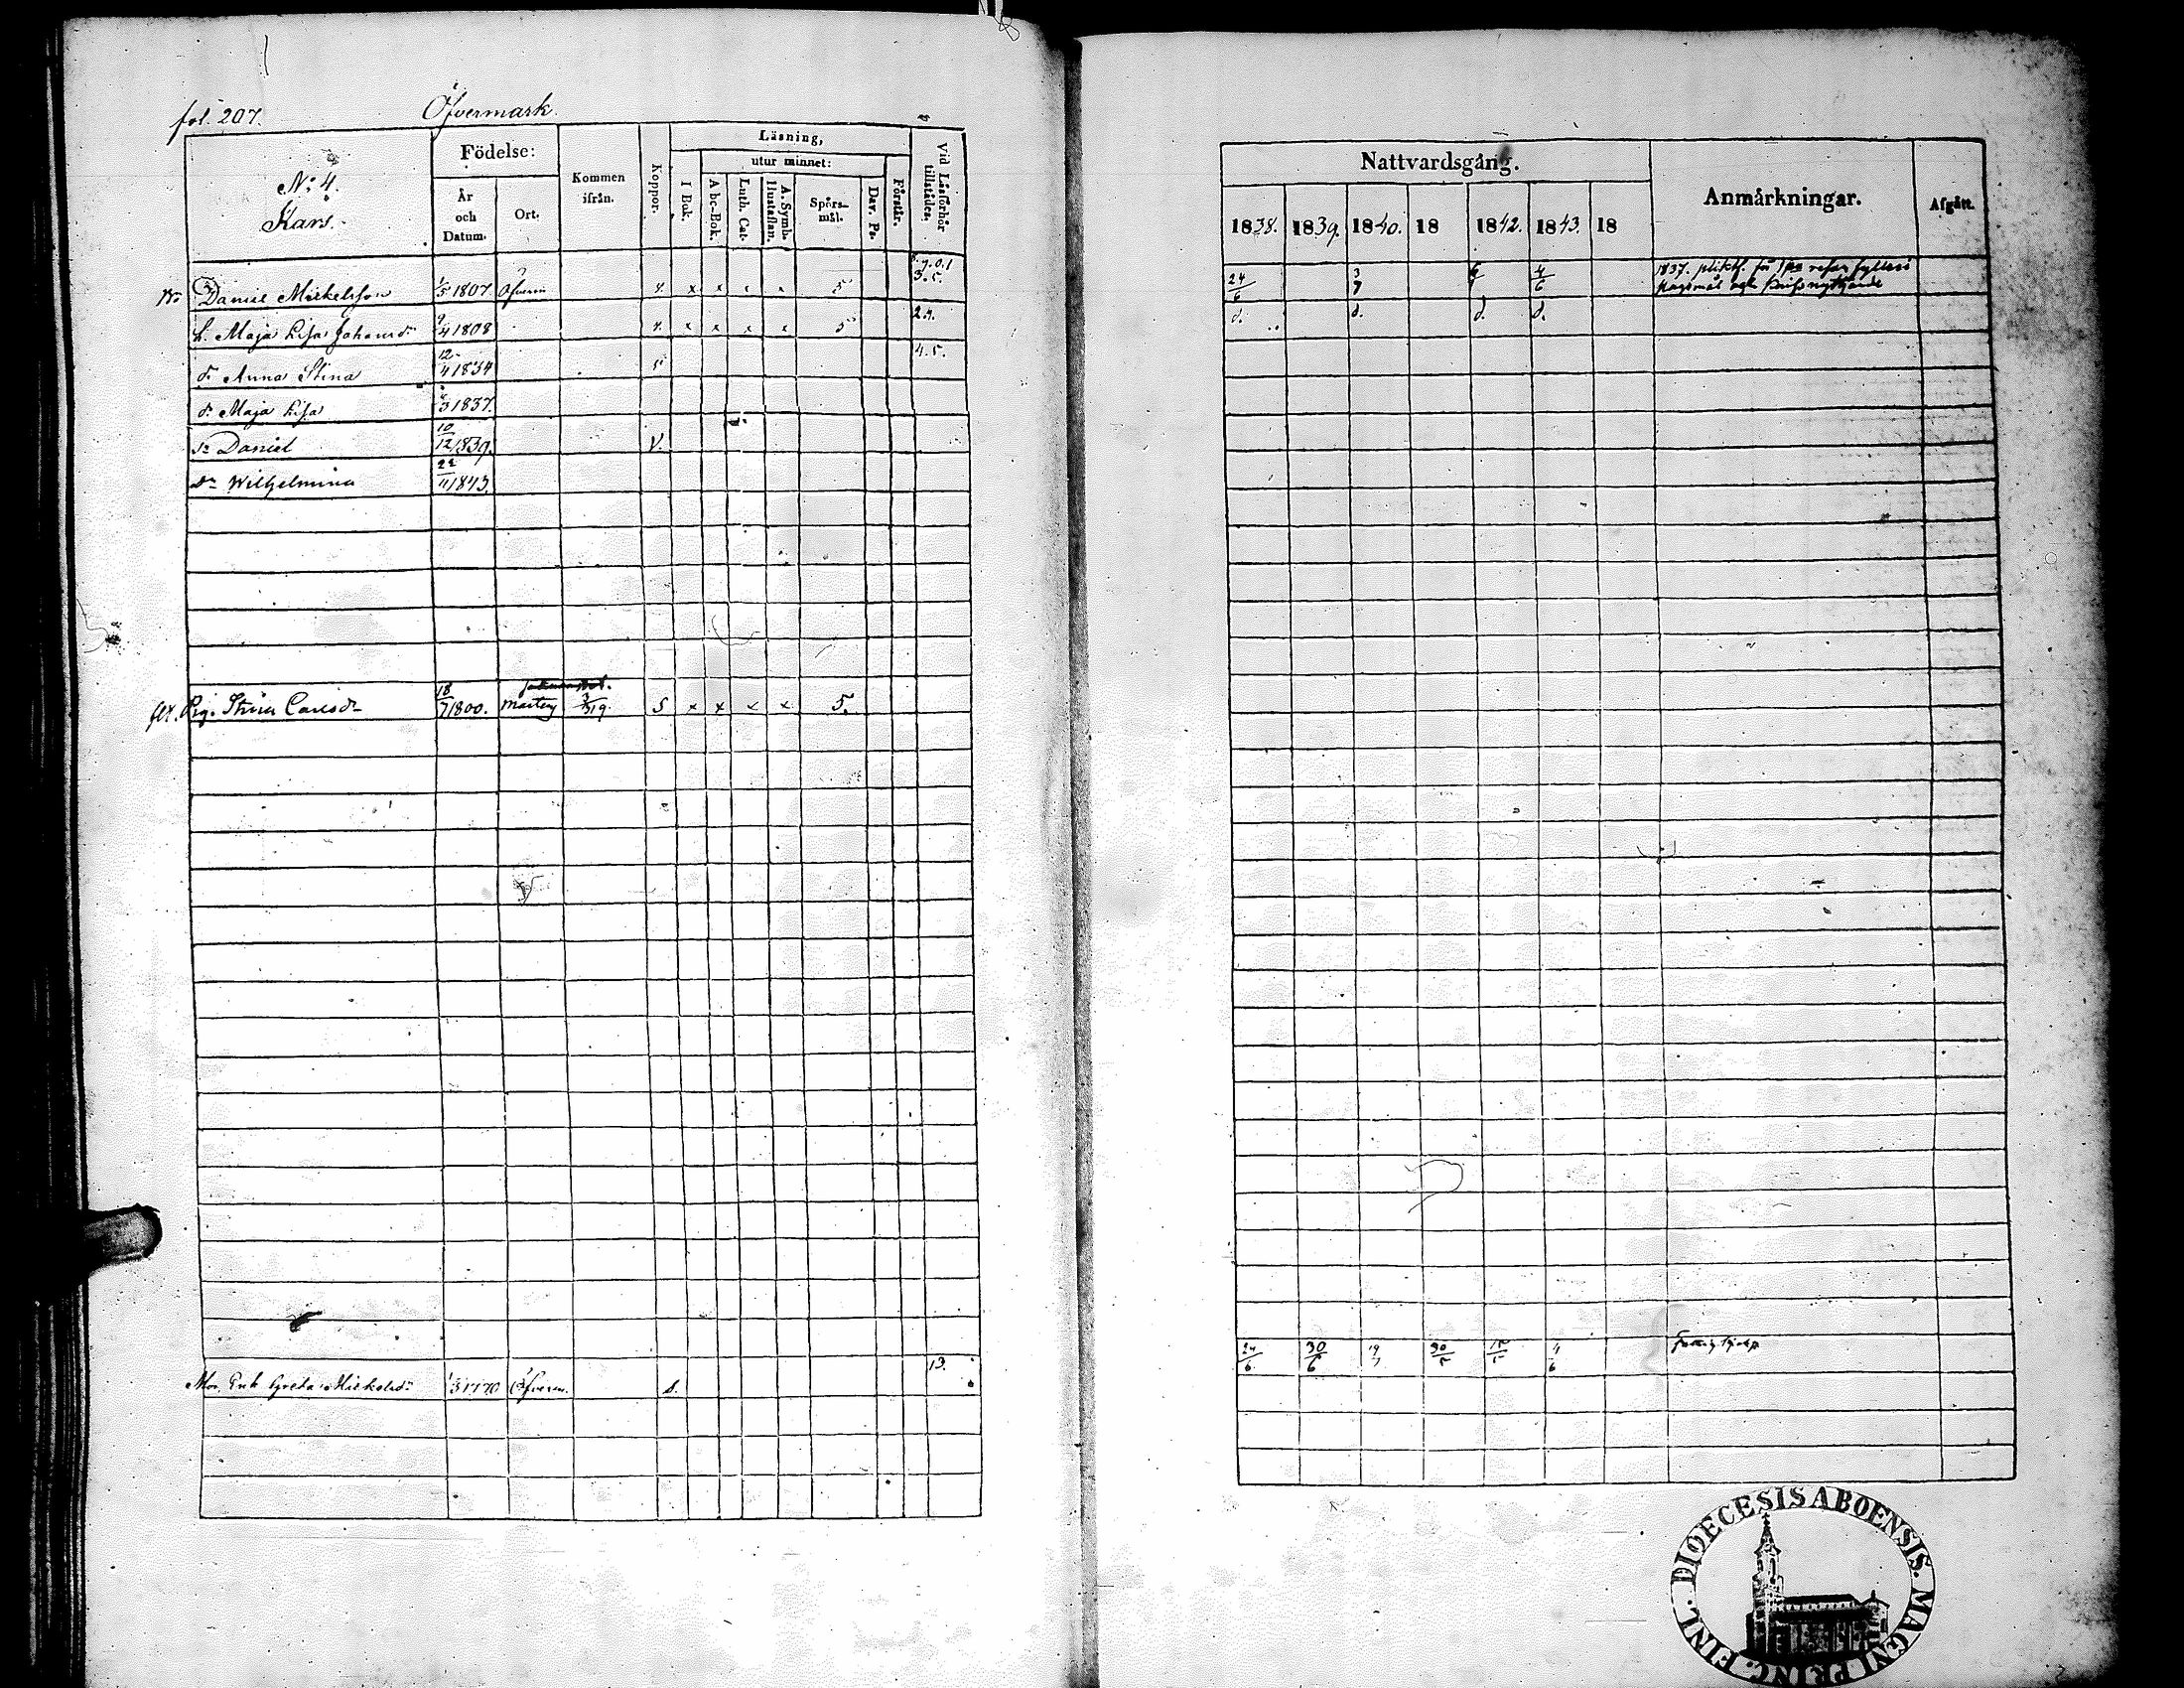 fol. 207. Öfvermark.
No: 4.
Kars.
Födelse:
År och Datum.
Ort.
Kommen ifrån.
Koppor.
Läsning,
utur minnet:
I Bok.
Abc-Bok.
Luth. Cat.
A. Symb. Hustaflan.
Spörs-mål.
Dav. Ps.
Förstår.
Vid Läsförhör tillstädes.
Daniel Mickelsson 1/3 1807 Öfverm v. x x x x 5 3.5.
h. Maja Lisa Johansdr 9/4 1808 v. x x x x 5 2.4.
dr Anna Stina 12/4 1834 4.5.
dr Maja Lisa /3 1837.
sn Daniel 10/12 1839. V.
dr Wilhelmina 22/11 1843.
Pig. Stina Carlsdr 18/7 1800. 3/3 19. S x x x x 5.
Greta Mickelsdr 1/3 1770 Öfverm. s. 13.
Nattvardsgång.
1838. 1839. 1840. 18 1842. 1843. 18
Anmärkningar.
Afgått.
24/6 3/7 4/6 1837.
d. d. d. d.
24/6 30/6 19/7 30/5 15/5 4/6
FINL. DIOECESIS ABOENSIS. MAGNI PRINC.